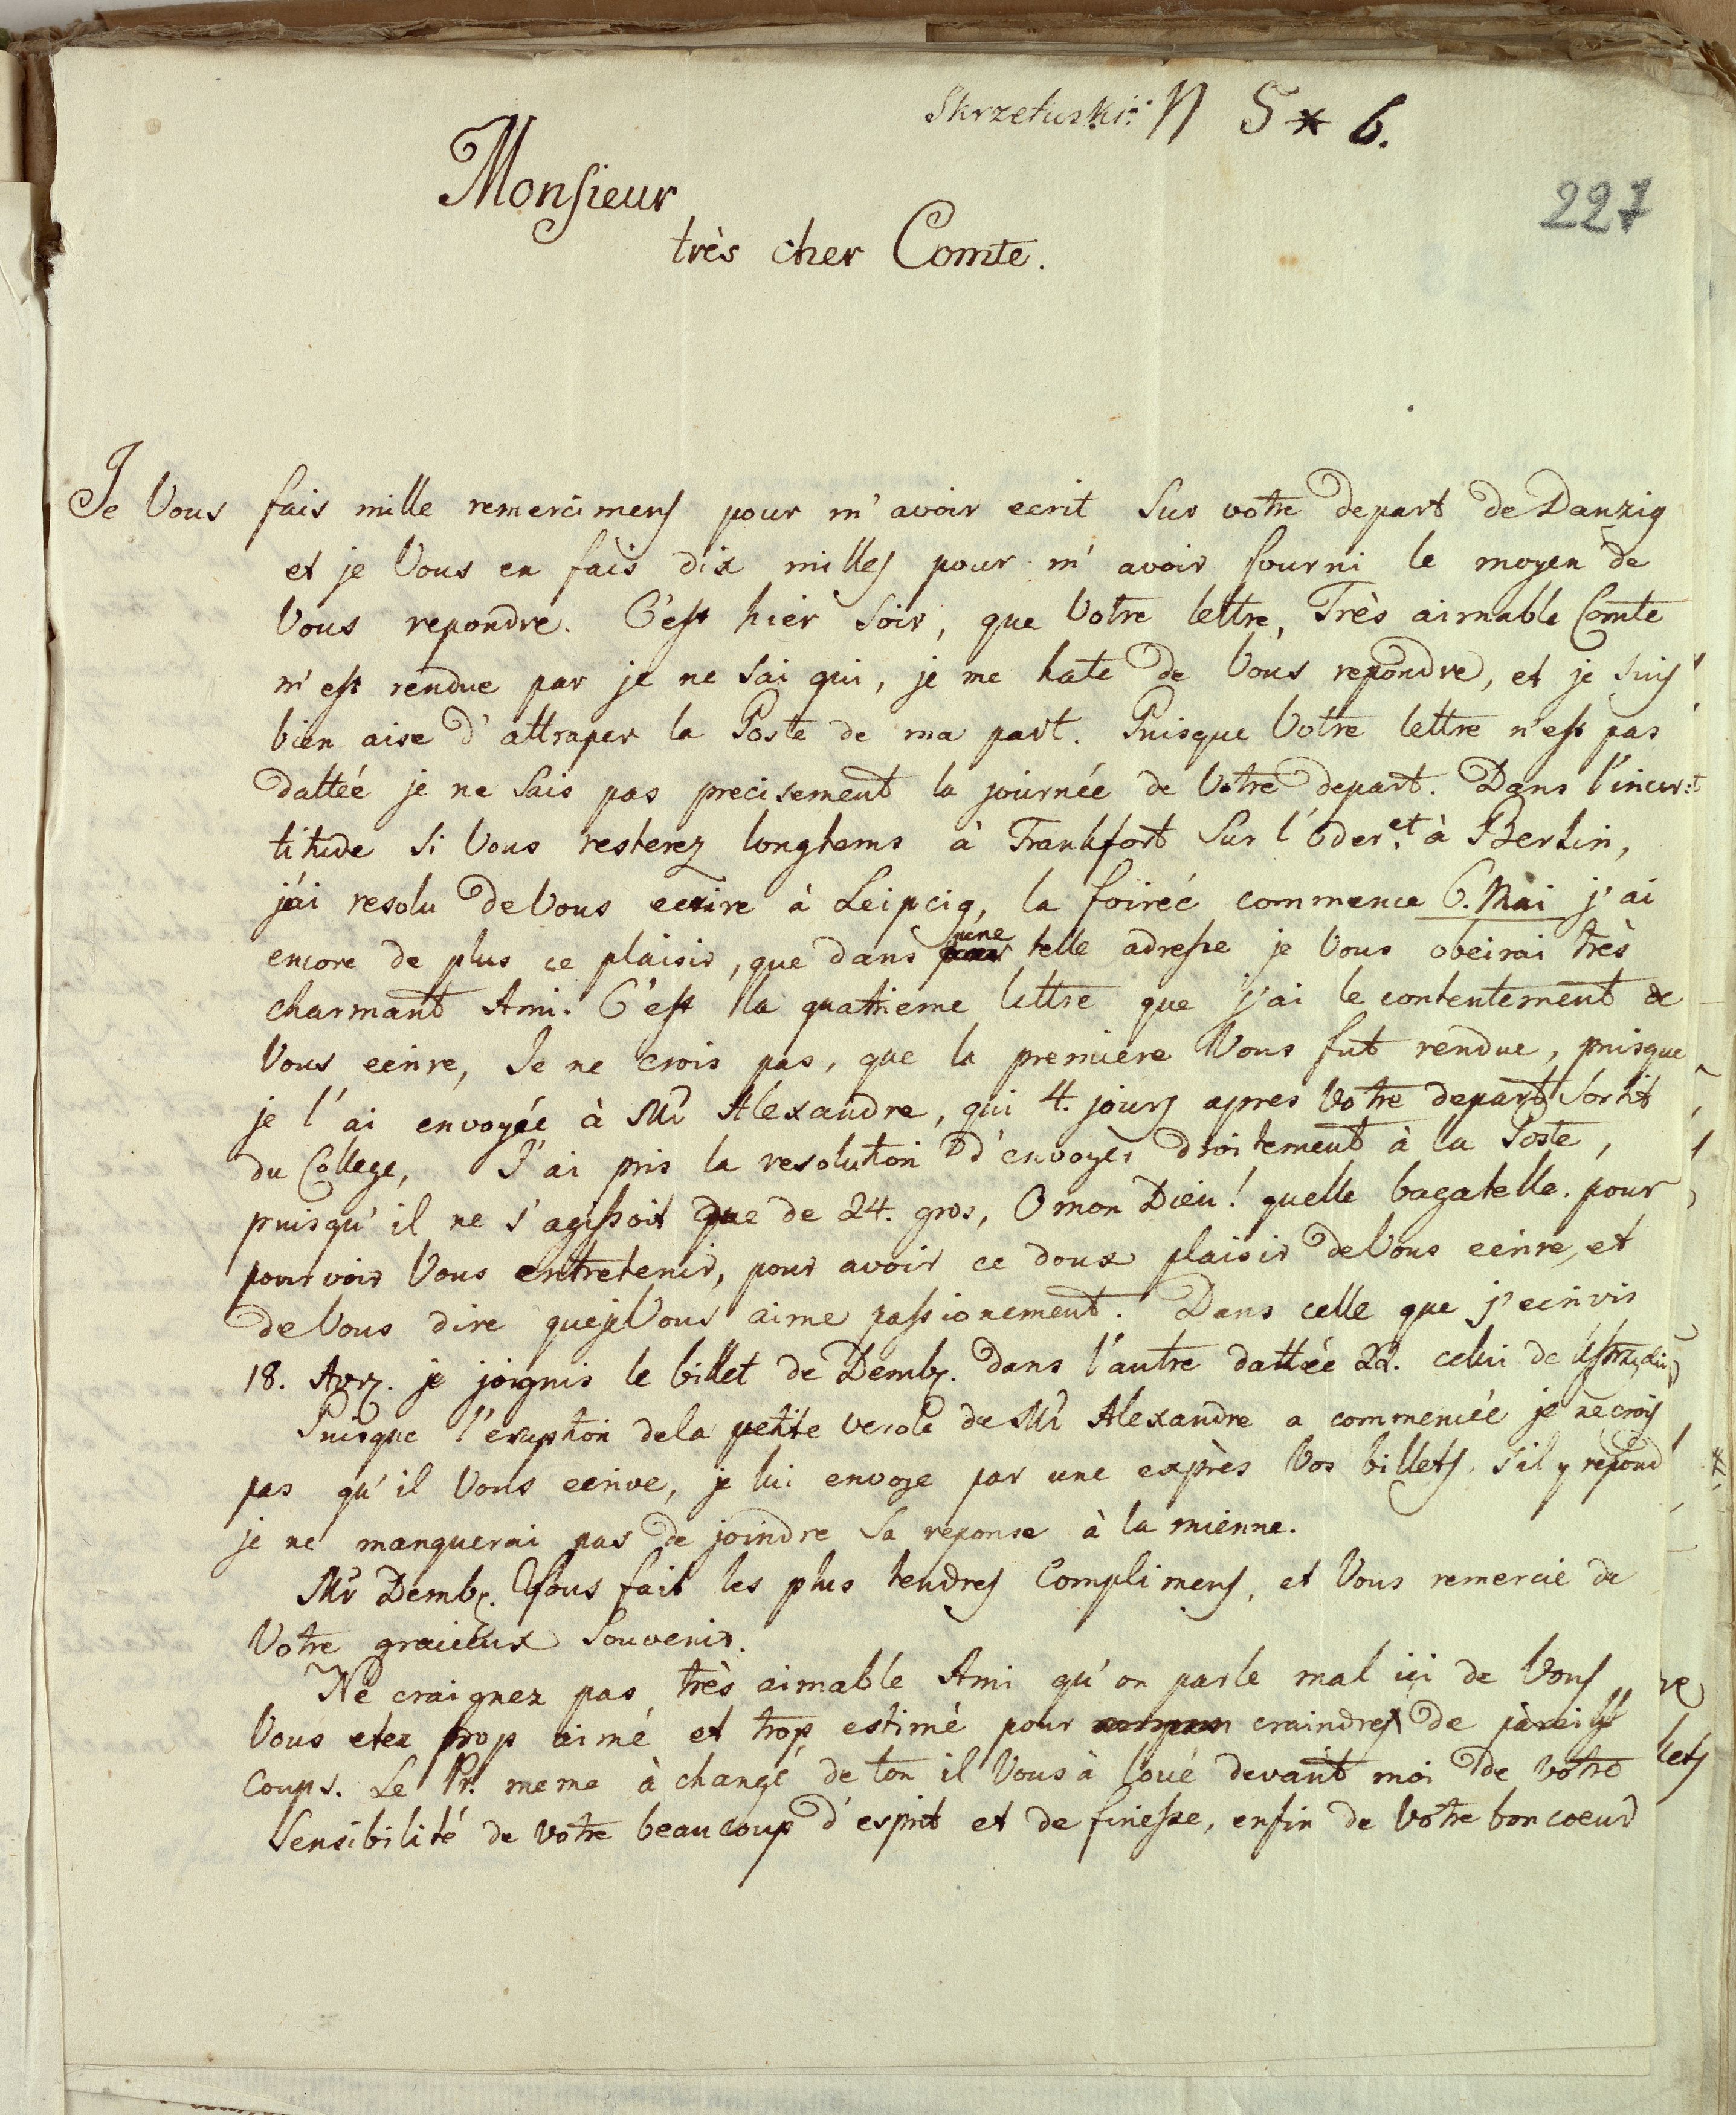 Skrzetuski: N 5 * 6.
227
Monsieur
très cher Comte.
Je Vous fais mille remercimens pour m'avoir ecrit sur votre depart de Danzig
et je Vous en fais dix milles pour m'avoir fourni le moyen de
Vous repondre. C'est hier soir, que Votre lettre, Très aimable Comte
m'est rendue par je ne sai qui, je me hate de Vous repondre, et je suis
bien aise d'attraper la Poste de ma part. Puisque Votre lettre n'est pas
dattéé je ne sais pas precisement la journée de Votre depart. Dans l'incer:
titude si Vous resterez longtems à Frankfort sur l'Oder et à Berlin,
j'ai resolu de Vous ecrire à Leipcig, la foireé commence 6. Mai j'ai
encore de plus ce plaisir, que dans une telle adresse je Vous obeirai très
charmant Ami. C'est la quatrieme lettre que j'ai le contentement de
Vous ecrire, Je ne crois pas, que la premiere Vous fut rendue, puisque
je l'ai envoyée à Mr Alexandre, qui 4. jours apres Votre depart sortit
du College, J'ai pris la resolution d'envoyer droitement à la Poste,
puisqu'il ne s'agissoit que de 24. gros, O mon Dieu! quelle bagatelle. pour
pourvoir Vous entretenir, pour avoir ce doux plaisir de Vous ecrire, et
de Vous dire que je Vous aime passionement. Dans celle que j'ecrivis
18. Avr. je joignis le billet de Demb. dans l'autre dattée 22. celui de
Puisque l'eruption de la petite verole de Mr Alexandre a commencée je ne crois
pas qu'il Vous ecrive, je lui envoye par une exprès Vos billets, s'il y repond
je ne manquerai pas de joindre sa reponse à la mienne.
Mr Demb. Vous fait les plus tendres Complimens, et Vous remercie de
Votre gracieux Souvenir.
Ne craignez pas très aimable Ami qu'on parle mal ici de Vous
Vous etez trop aimé et trop estimé pour craindre de pareils
Coups. Le Pr. meme à changé de ton il Vous à loué devant moi de votre
Sensibilité de votre beaucoup d'esprit et de finesse, enfin de Votre bon coeur